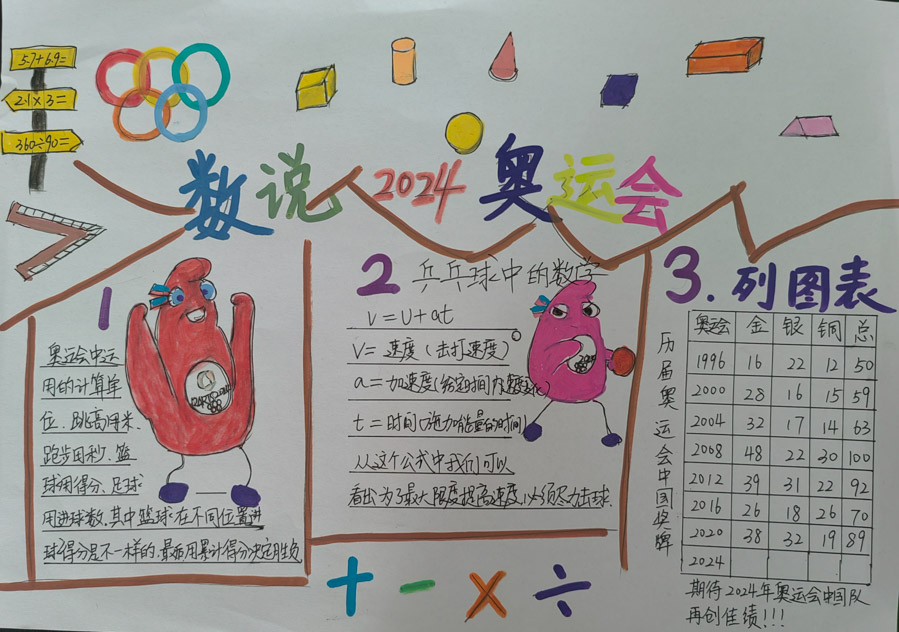 5.7+6.9=
2.1×3=
360÷90=
数说2024奥运会
1
奥运会中运
用的计算单
位.跳高用米.
跑步用秒.篮
球用得分、足球
用进球数.其中篮球在不同位置进
球得分是不一样的.最后用累计得分决定胜负
2 乒乓球中的数学
v=u+at
v= 速度(击打速度)
a=加速度(给定时间内
t=时间(施加能量的时间)
从这个公式中我们可以
看出为了最大限度提高速度,必须尽力击球.
3.列图表
历届奥运会中国奖牌
奥运会 金 银 铜 总
1996 16 22 12 50
2000 28 16 15 59
2004 32 17 14 63
2008 48 22 30 100
2012 39 31 22 92
2016 26 18 26 70
2020 38 32 19 89
2024
期待2024年奥运会中国队
再创佳绩!!!
+ - × ÷